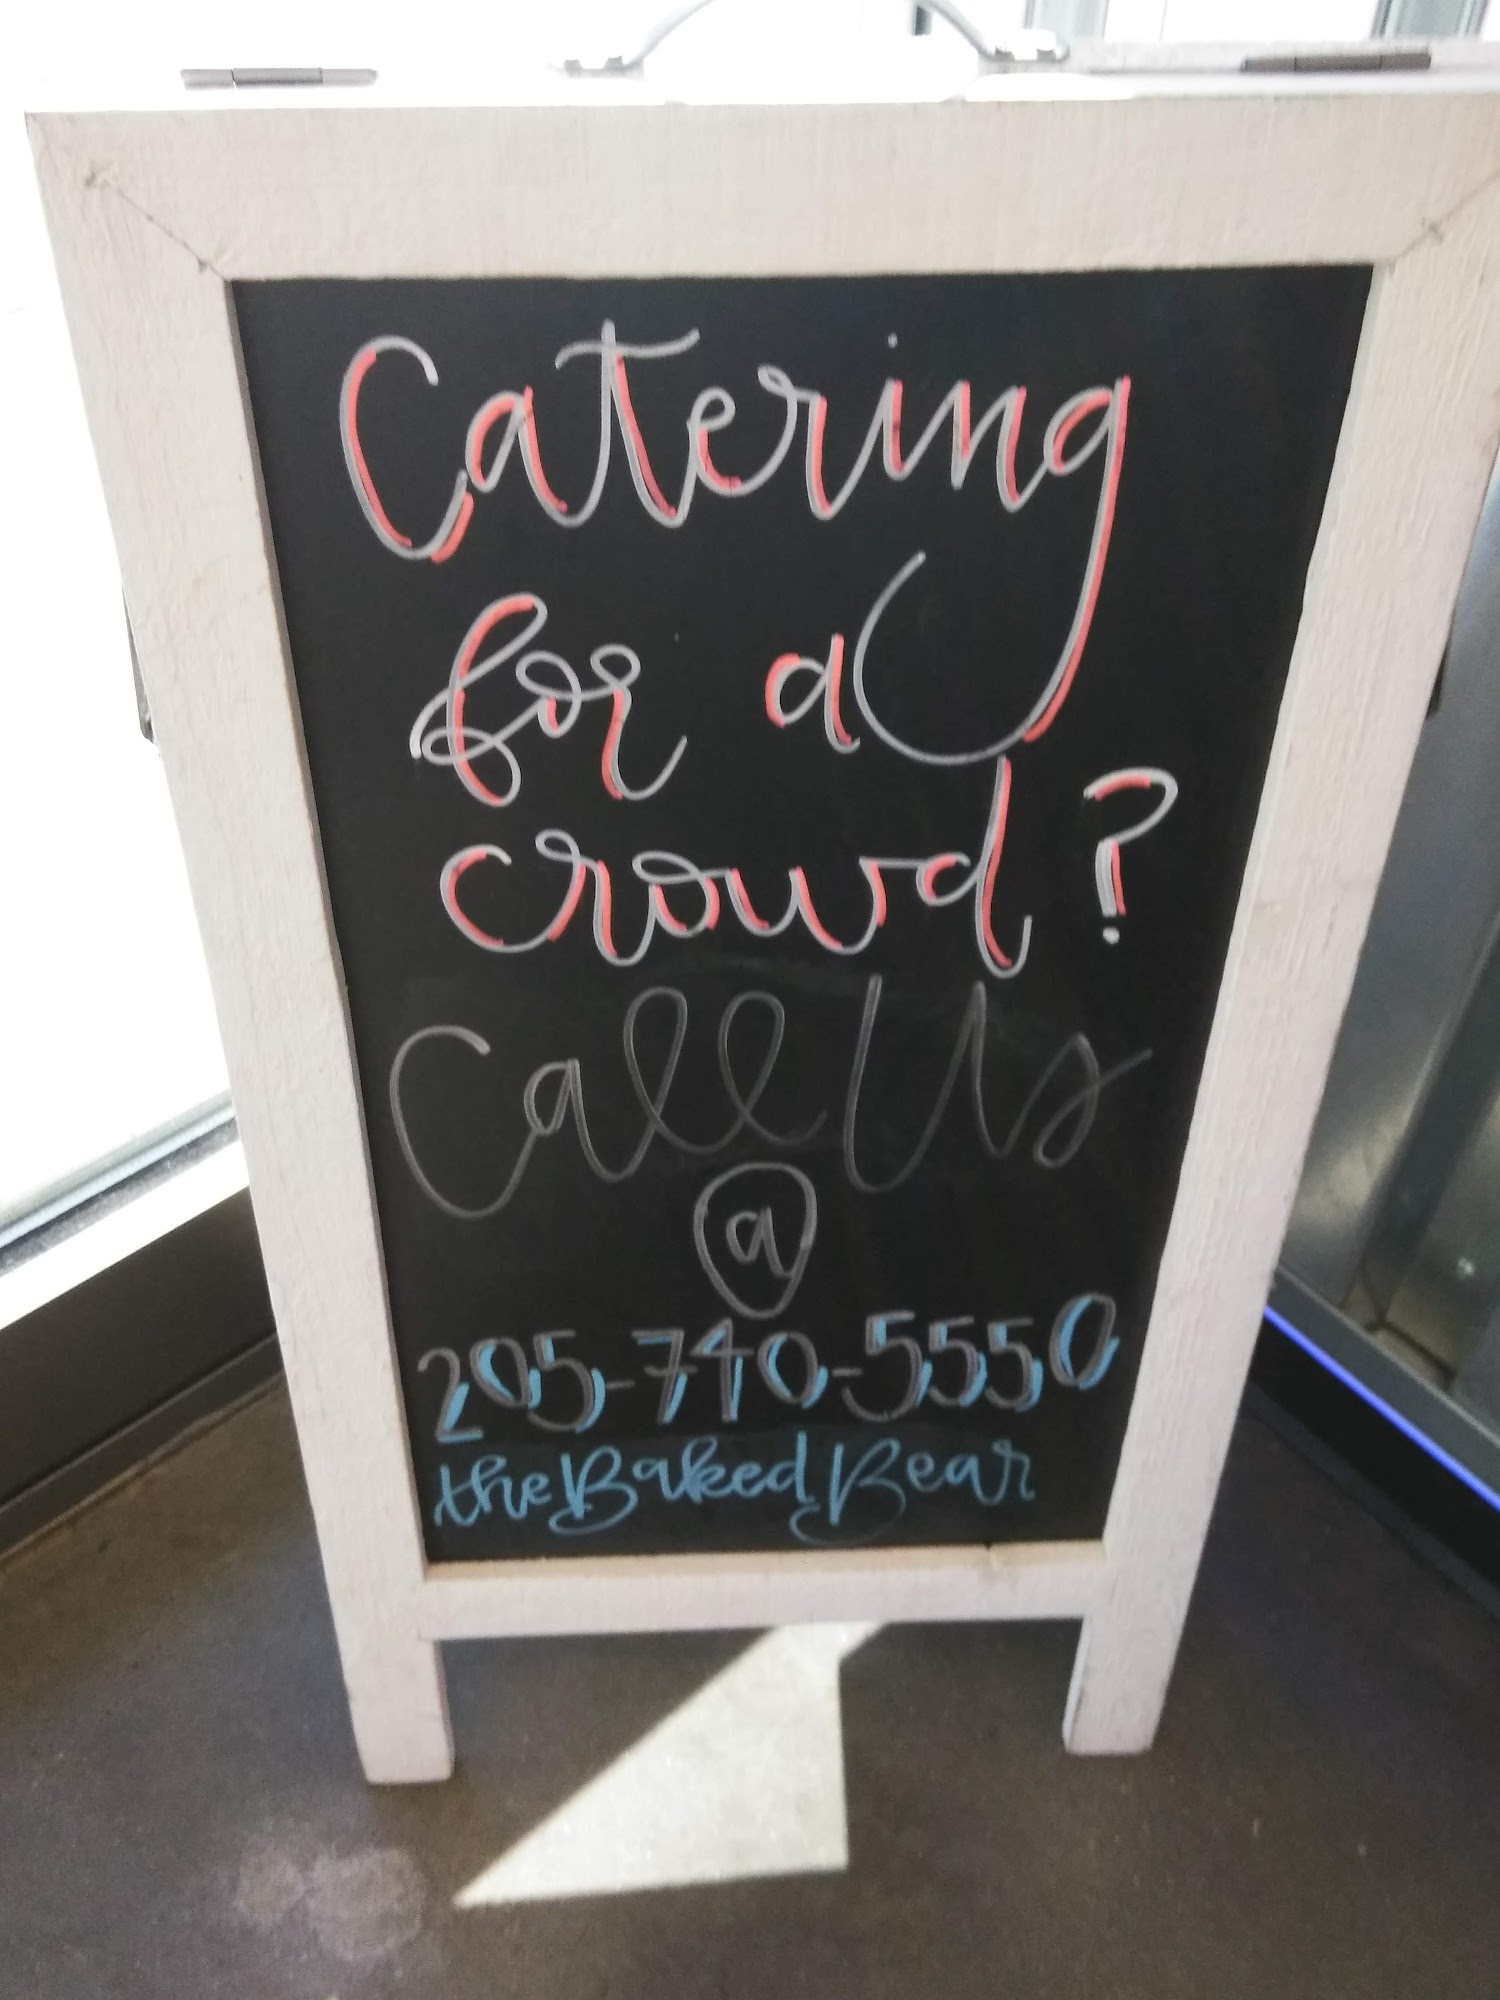 Catering
for a
crowd?
Call Us
@
205-740-5550
the Baked Bear